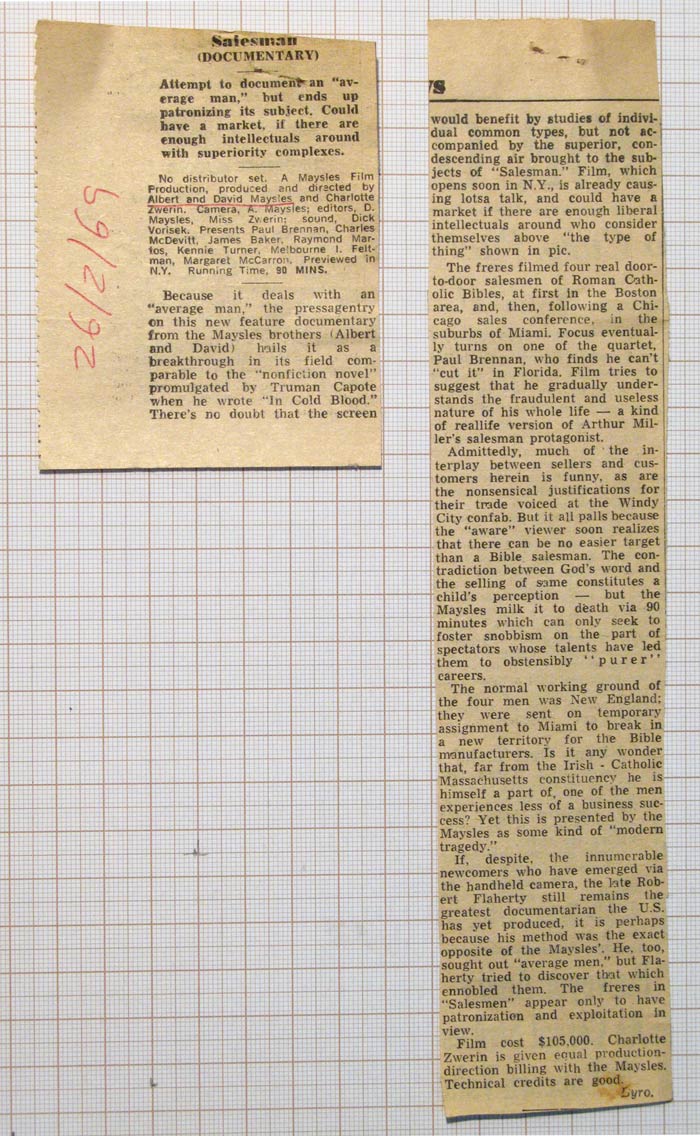 Salesman
(DOCUMENTARY)
Attempt to document an "av-
erage man," but ends up
patronizing its subject. Could
have a market, if there are
enough intellectuals around
with superiority complexes.
No distributor set. A Maysles Film
Production, produced and directed by
Albert and David Maysles and Charlotte
Zwerin. Camera, A. Maysles; editors, D.
Maysles, Miss Zwerin; sound, Dick
Vorisek. Presents Paul Brennan, Charles
McDevitt, James Baker, Raymond Mar-
tos, Kennie Turner, Melbourne I. Felt-
man, Margaret McCarron. Previewed in
N.Y. Running Time, 90 MINS.
Because it deals with an
"average man," the pressagentry
on this new feature documentary
from the Maysles brothers (Albert
and David) hails it as a
breakthrough in its field com-
parable to the "nonfiction novel"
promulgated by Truman Capote
when he wrote "In Cold Blood."
There's no doubt that the screen
26/2/69
would benefit by studies of indivi-
dual common types, but not ac-
companied by the superior, con-
descending air brought to the sub-
jects of "Salesman." Film, which
opens soon in N.Y., is already caus-
ing lotsa talk, and could have a
market if there are enough liberal
intellectuals around who consider
themselves above "the type of
thing" shown in pic.
The freres filmed four real door-
to-door salesmen of Roman Cath-
olic Bibles, at first in the Boston
area, and, then, following a Chi-
cago sales conference, in the
suburbs of Miami. Focus eventual-
ly turns on one of the quartet,
Paul Brennan, who finds he can't
"cut it" in Florida. Film tries to
suggest that he gradually under-
stands the fraudulent and useless
nature of his whole life — a kind
of reallife version of Arthur Mil-
ler's salesman protagonist.
Admittedly, much of the in-
terplay between sellers and cus-
tomers herein is funny, as are
the nonsensical justifications for
their trade voiced at the Windy
City confab. But it all palls because
the "aware" viewer soon realizes
that there can be no easier target
than a Bible salesman. The con-
tradiction between God's word and
the selling of same constitutes a
child's perception — but the
Maysles milk it to death via 90
minutes which can only seek to
foster snobbism on the part of
spectators whose talents have led
them to obstensibly "purer"
careers.
The normal working ground of
the four men was New England;
they were sent on temporary
assignment to Miami to break in
a new territory for the Bible
manufacturers. Is it any wonder
that, far from the Irish - Catholic
Massachusetts constituency he is
himself a part of, one of the men
experiences less of a business suc-
cess? Yet this is presented by the
Maysles as some kind of "modern
tragedy."
If, despite, the innumerable
newcomers who have emerged via
the handheld camera, the late Rob-
ert Flaherty still remains the
greatest documentarian the U.S.
has yet produced, it is perhaps
because his method was the exact
opposite of the Maysles'. He, too,
sought out "average men," but Fla-
herty tried to discover that which
ennobled them. The freres in
"Salesmen" appear only to have
patronization and exploitation in
view.
Film cost $105,000. Charlotte
Zwerin is given equal production-
direction billing with the Maysles.
Technical credits are good.
Byro.